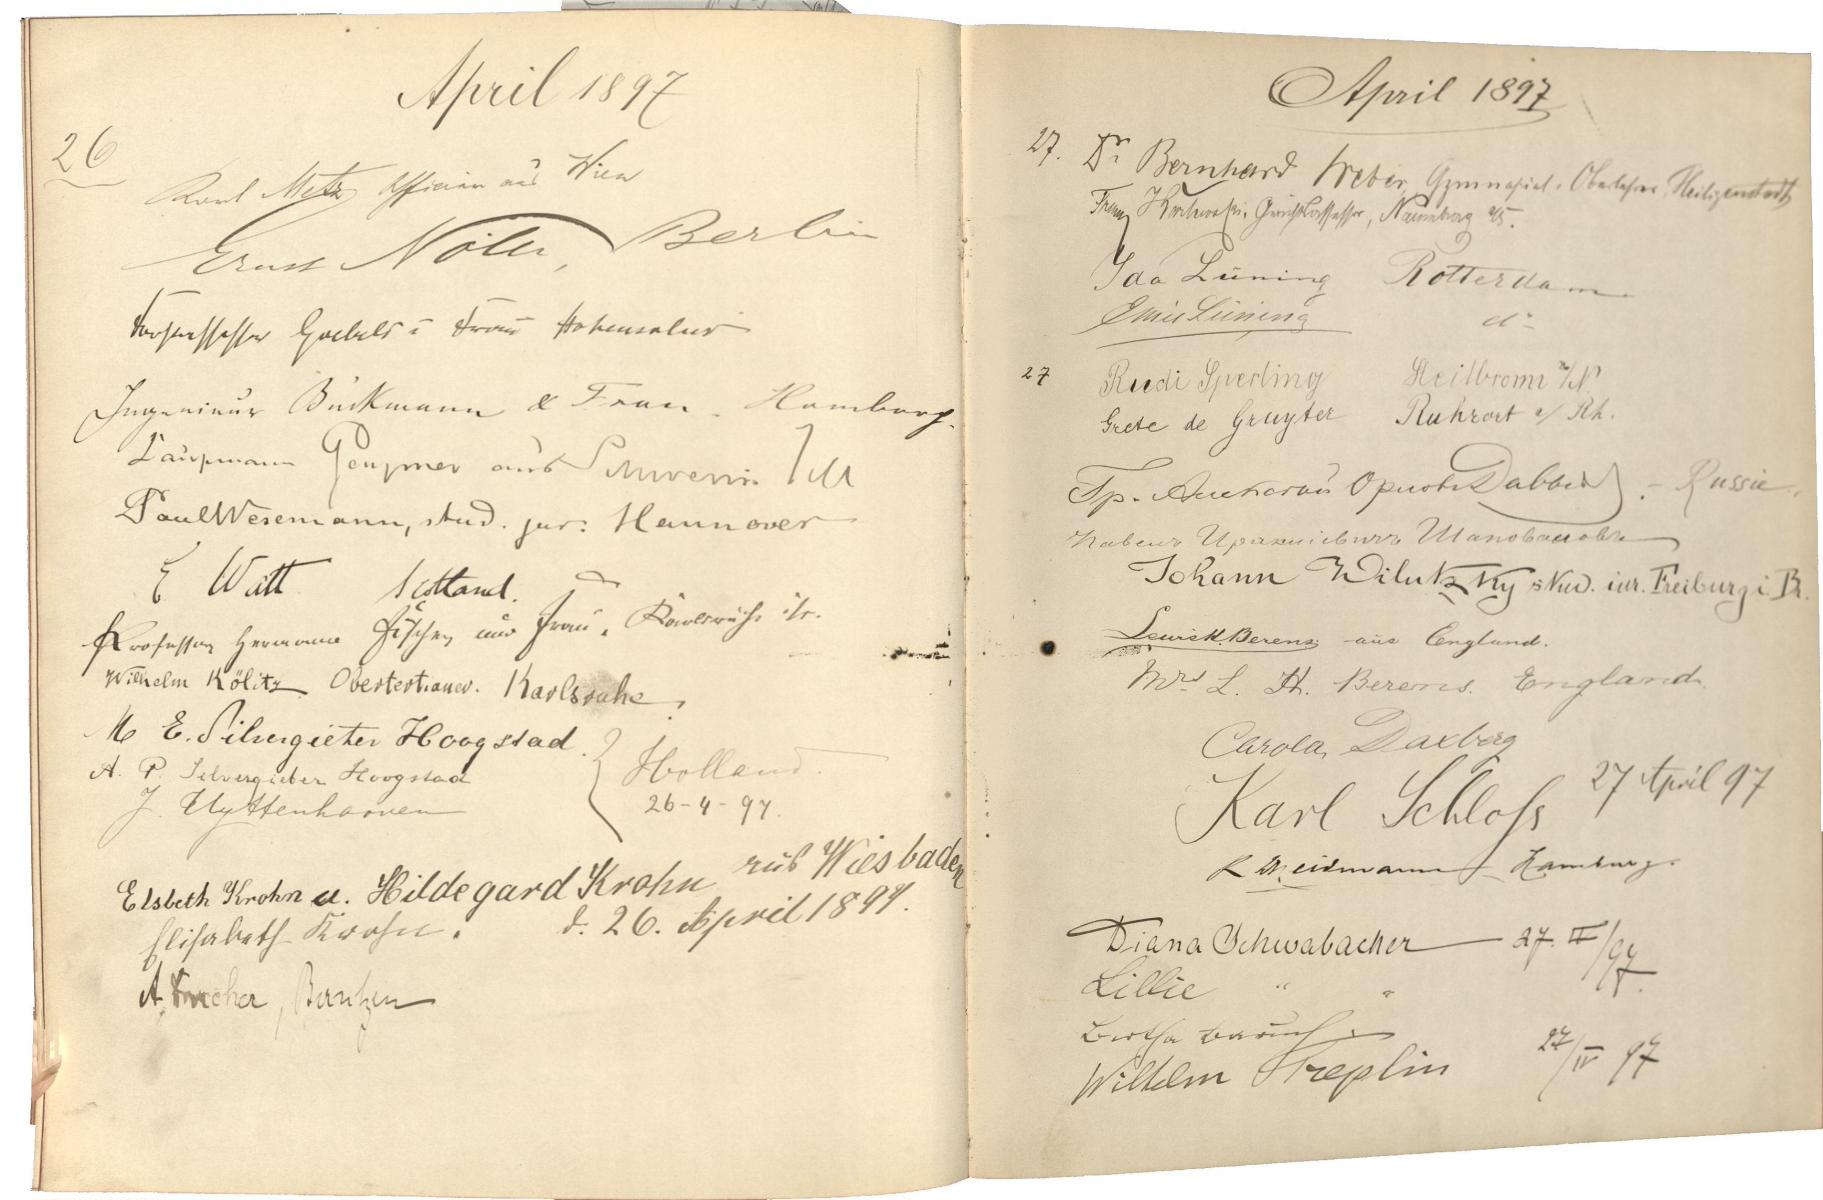 April 1897
26
Karl Metz Officier aus Wien
Ernst Berlin
Forstassessor Goebels u Frau
Ingenieur Buckmann & Frau. Hamburg.
aus Schwerin i/M
Paul Wesemann, stud. jur. Hannover
E Watt Scotland.
Professor Hermann und Frau, Karlsruhe
Wilhelm Kölitz Obertertianer. Karlsruhe.
M E. Silvergieter Hoogstad
A. P. Silvergieter Hoogstad Holland.
J. Uyttenhooven 26-4-97.
Elsbeth Krohn u. Hildegard Krohn aus Wiesbaden
Elisabeth Krohn. d. 26. April 1897.
A. Bautzen
April 1897
27. Dr Bernhard Weber, Gymnasial-Oberlehrer, Heiligenstadt
Franz Gerichtsassessor, Naumburg a/S.
Ida Lüning Rotterdam
Emil Lüning do
27 Rudi Sperling Heilbronn a/N
Grete de Gruyter Ruhrort a/Rh.
Гр. Орловъ Давыдовъ. - Russie.
Johann Wilutzky stud. iur. Freiburg i Br.
Lewis H. Berens aus England.
Mrs L. H. Berens. England.
Carola Daxberg
Karl Schloß 27 April 97
Hamburg.
Diana Schwabacher 27. IV/97.
Lillie " "
Bertha
Wilhelm Treplin 27/IV 97